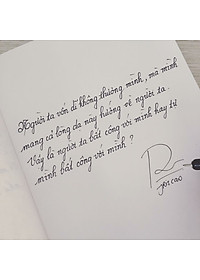 Người ta vốn dĩ không thương mình, mà mình
mang cả lòng dạ này hướng về người ta.
Vậy là người ta bất công với mình hay tự
mình bất công với mình?